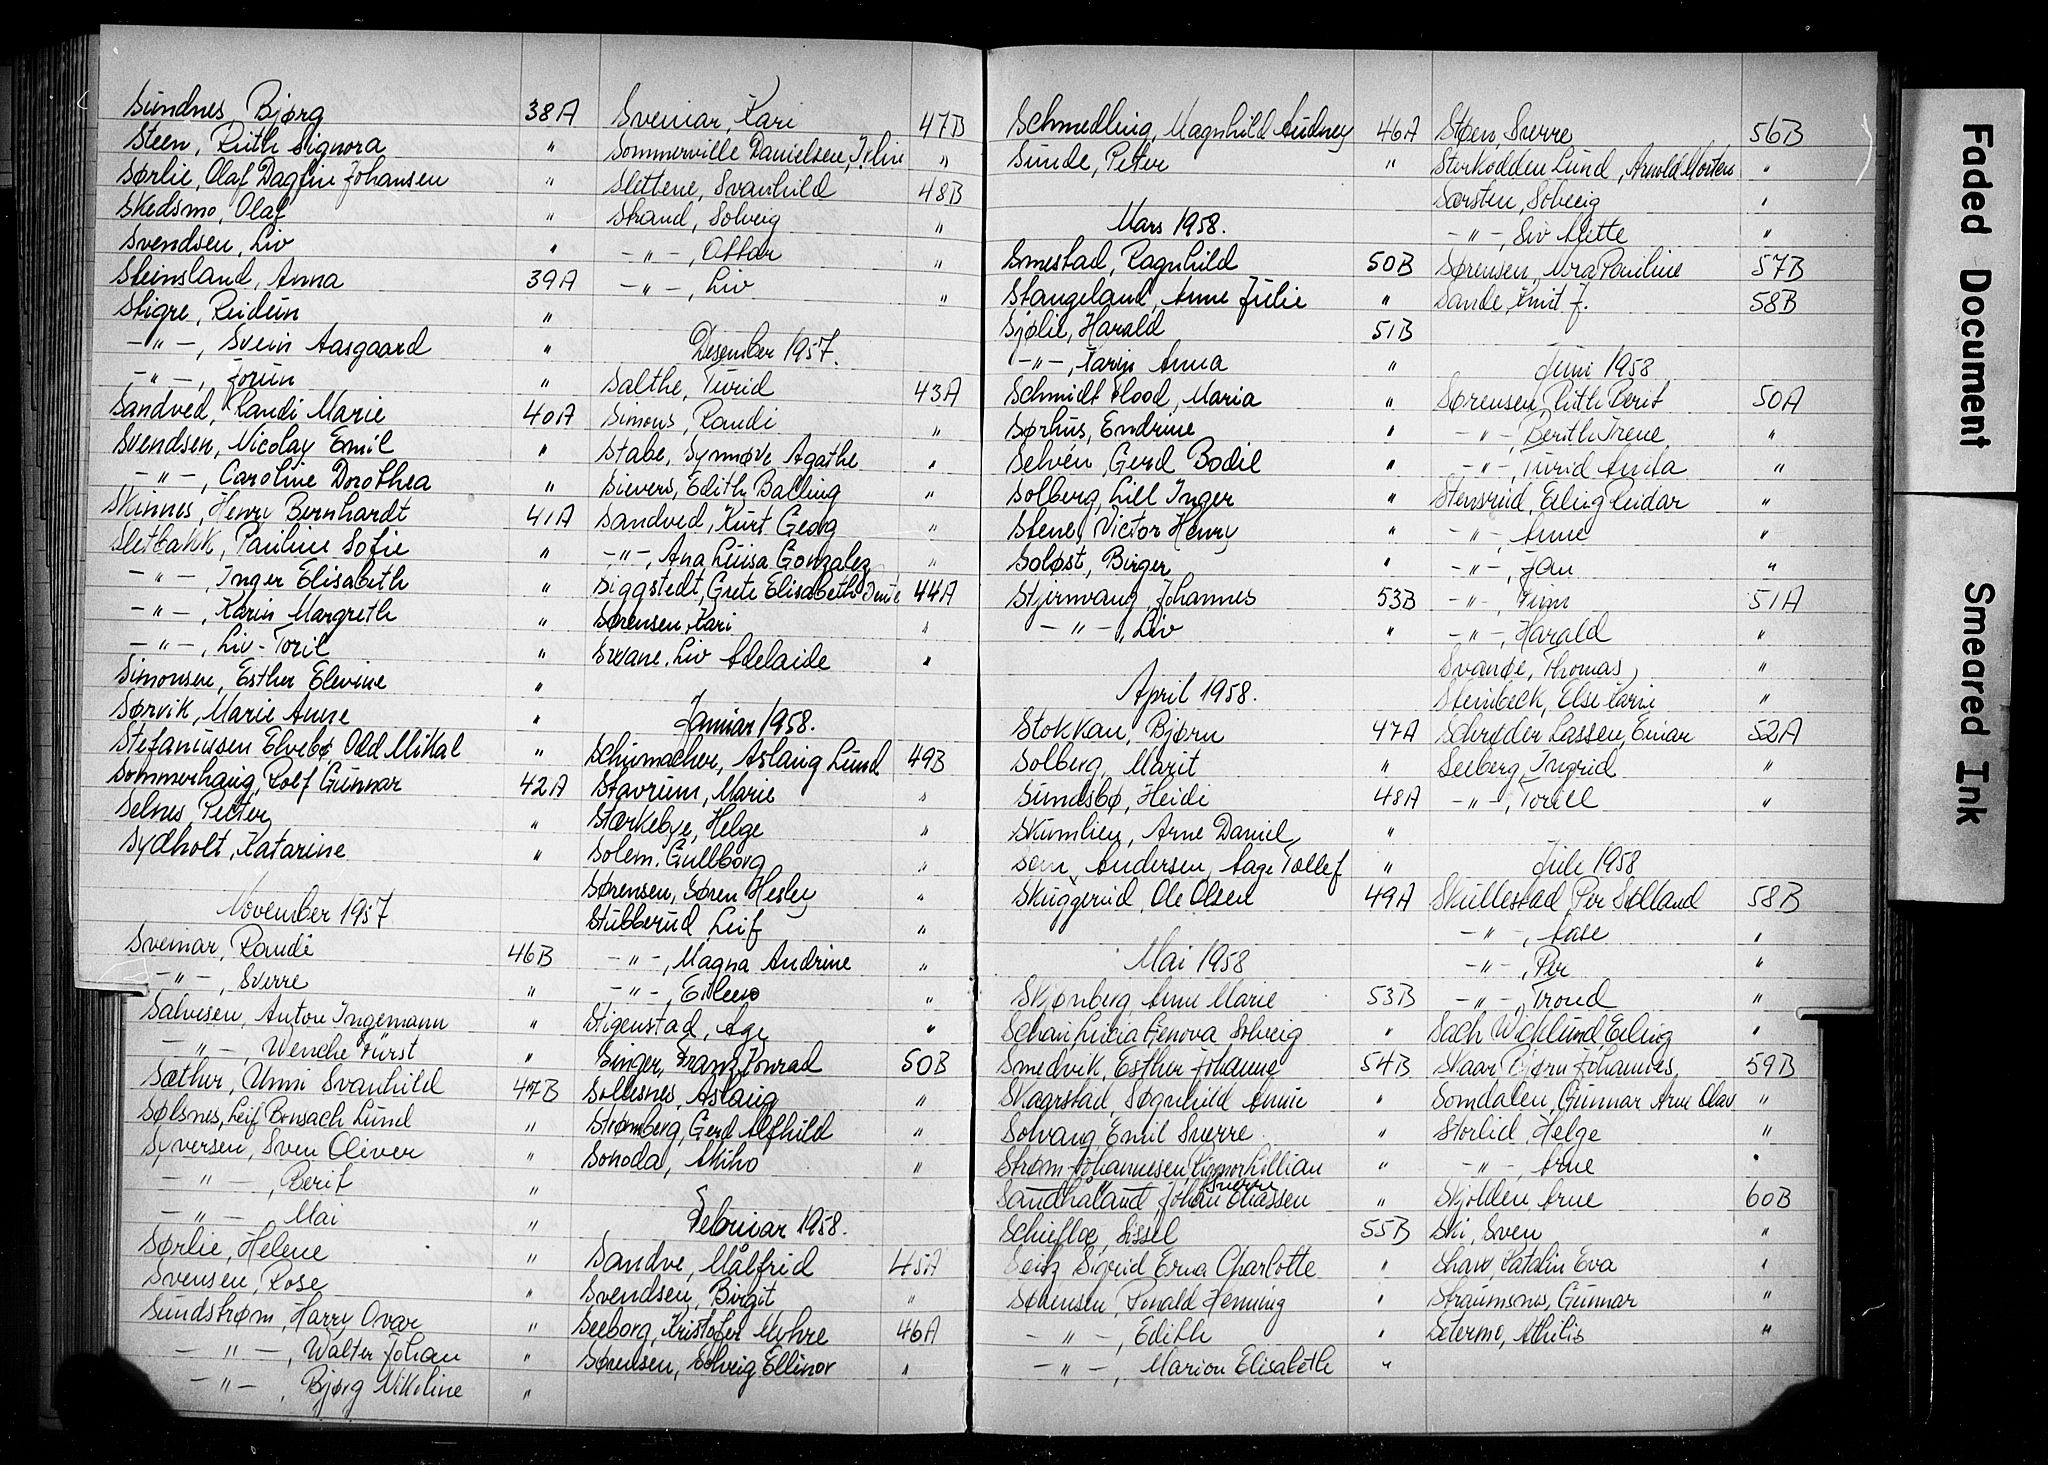 Sundnes Bjørg 38A
Steen, Ruth Signora "
Sørlie, Olaf Dagfinn Johansen "
Skedsmo, Olaf "
Svendsen, Liv "
Steinsland, Anna 39A
Stigre, Reidun "
-"-, Svein Aasgaard "
-"-, Jorun "
Sandved, Randi Marie 40A
Svendsen, Nicolay Emil "
-"-, Caroline Dorothea "
Skinnes, Henri Bernhardt 41A
Sletbakk, Pauline Sofie "
-"-, Inger Elisabeth "
-"-, Karin Margreth "
-"-, Liv-Toril "
Simonsen, Esther Elevine "
Sørvik, Marie Anne "
Stefanussen Elvebø, Odd Mikal "
Sommerhaug, Rolf Gunnar 42A
Selnes, Petter "
Sydholt, Katarine "
November 1957
Sveinar, Randi 46B
-"-, Sverre "
Salvesen, Anton Ingemann "
-"-, Wenche Fürst "
Sæther, Unni Svanhild 47B
Sølsnes, Leif Bonsach Lund "
Syversen, Sven Oliver "
-"-, Berit "
-"- Mai "
Sørlie, Helene "
Svensen, Rose "
Sundstrøm, Harry Ovar "
-"-, Walter Johan "
-"-, Bjørg Nikoline "
Sveinar, Kari 47B
Sommerville Danielsen, "
Slettene, Svanhild 48B
Strand, Solveig "
-"-, Ottar "
-"-, Liv "
Desember 1957.
Salthe, Turid 43A
Simons, Randi "
Stabe, Synnøve Agathe "
Sievers, Edith Balling "
Sandved, Kurt Georg "
-"-, Ana Luisa Gonzalez "
Siggstedt, Grete Elisabeth 44A
Sørensen, Kari "
Svane, Liv Adelaide "
Januar 1958.
Schumacher, Aslaug Lund 49B
Stavrum, Marie "
Størkebye, Helge "
Solem, Gullborg "
Sørensen, Søren Hesley "
Stubberud, Leif "
-"-, Magna Andrine "
-"-, Eileen "
Stigenstad, Age "
Singer, Franz Konrad 50B
Sollesnes, Aslaug "
Strømberg, Gerd Alfhild "
Sonoda, Akiho "
Februar 1958.
Sandve, Målfrid 45A
Svendsen, Birgit "
Seeborg, Kristofer Myhre 46A
Sørensen, Solveig Ellinor "
Schmedling, Magnhild Audney 46A
Sunde, Peter "
Mars 1958.
Smestad, Ragnhild 50B
Stangeland, Anne Julie "
Sjølie, Harald 51B
-"-, Karin Anna "
Schmidt Flood, Maria "
Sørhus, Endrine "
Selvén, Gerd Bodil "
Solberg, Lill Inger "
Stene, Victor Henry "
Soløst, Birger "
Stjernvang, Johannes 53B
-"-, Liv "
April 1958.
Stokkan, Bjørn 47A
Solberg, Marit "
Sundsbø, Heidi 48A
Skumlien, Arne Daniel "
Sem, Andersen, Aage Tollef "
Skuggerud, Ole Olsen 49A
Mai 1958
Skjønberg, Anne Marie 53B
Schau, Lucia Genova Solveig "
Smedvik, Esther Johanne 54B
Skaarstad, Søgnhild Annie "
Solvang Emil Sverre "
Strøm-Johannesen, Lillian "
Sverre
Sandhaland Johan Eliassen "
Schiefloe, Sissel 55B
Seitz Sigrid Erna Charlotte "
Sørensen, Ronald Henning "
-"-, Edith "
-"-, Marion Elisabeth "
Støen, Sverre 56B
Storhodden Lund, Arnold Morten "
Sarsten, Solveig "
-"-, Siv Mette "
Sørensen, Nora Pauline 57B
Sande, Knut J. 58B
Juni 1958
Sørensen, Ruth Berit 50A
-"-, Berith Irene "
-"-, Turid Anita "
Stensrud, Erling Reidar "
-"-, Anne "
-"-, Jan "
-"-, Finn 51A
-"-, Harald "
Svandø, Thomas "
Steinbeck, Else Karin "
Schrøder Lassen, Einar 52A
Seeberg, Ingrid "
-"-, Torill "
Juli 1958
Skullestad, Per Sølland 58B
-"-, Aase "
-"-, Per "
-"-, Trond "
Sach Wicklund, Erling "
Skaar, Bjørn Johannes, 59B
Somdalen, Gunnar Arne Olav "
Storlid, Helge "
-"-, Arne "
Skjolden, Arne 60B
Ski, Sven "
Shaw, Katalin Eva "
Straumsnes, Gunnar "
Setermo, Athilis "
Faded Document
Smeared Ink